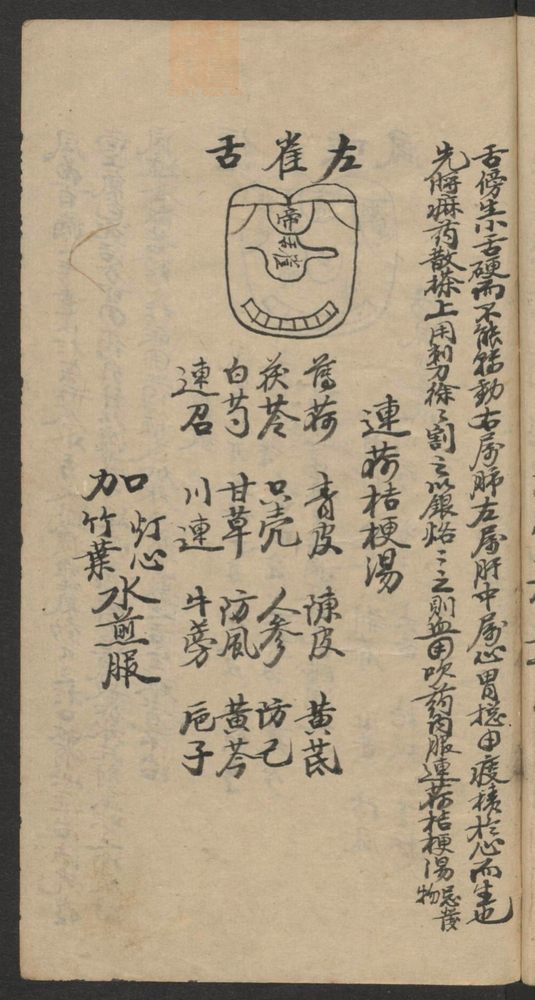 舌傍生小舌硬而不能轉動右屬肺左屬肝中屬心胃總由痰積於心而生也
先將麻藥散搽上用割刀徐々割之以銀烙々之則血用吹藥內服連荷桔梗湯 忌發物
左雀舌
帝舌
連荷桔梗湯
薄荷 青皮 陳皮 黃芪
茯苓 只壳 人參 防己
白芍 甘草 防風 黃芩
連召 川連 牛蒡 梔子
加灯心竹葉水煎服